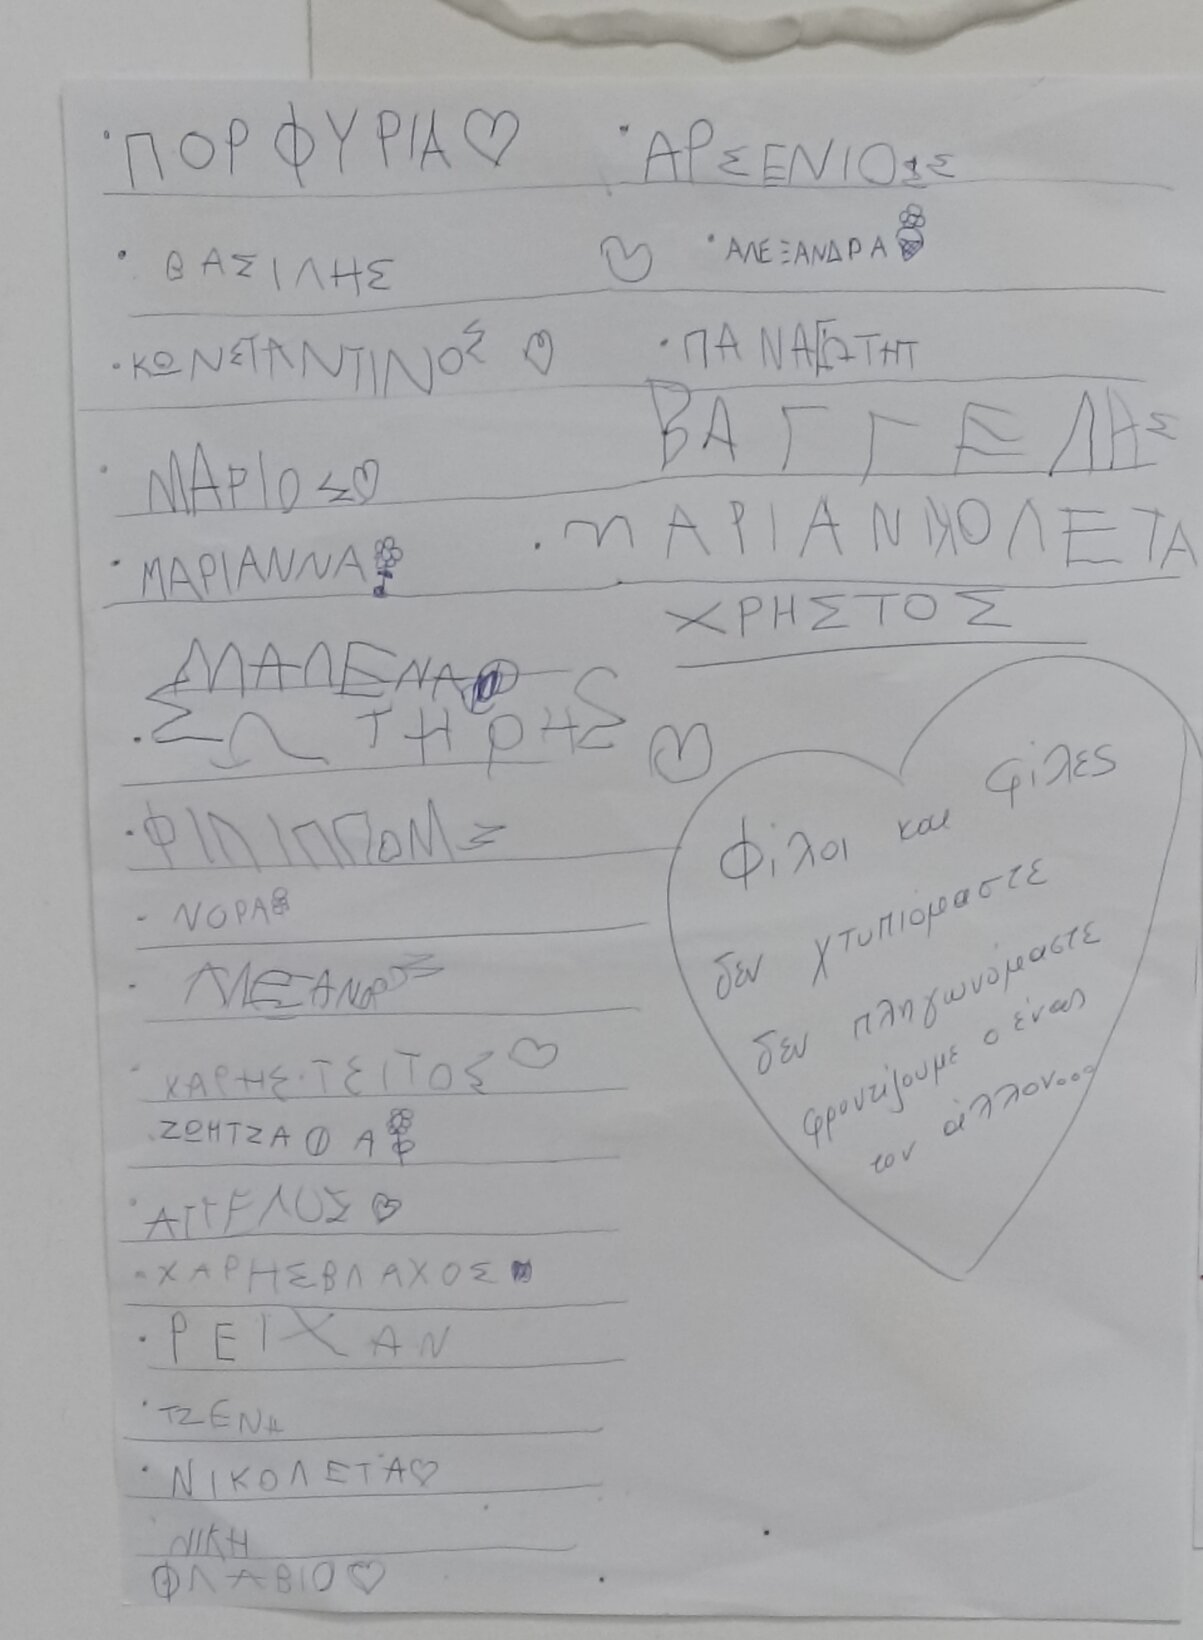 ΠΟΡΦΥΡΙΑ
ΒΑΣΙΛΗΣ
ΚΩΝΣΤΑΝΤΙΝΟΣ
ΜΑΡΙΟΣ
ΜΑΡΙΑΝΝΑ
ΜΑΛΕΝΑ
ΣΩΤΗΡΗΣ
ΝΟΡΑ
ΧΑΡΗΣ.ΤΣΙΤΟΣ
ΑΓΓΕΛΟΣ
ΧΑΡΗΣΒΛΑΧΟΣ
ΡΕΙΧΑΝ
ΤΖΕΝΑ
ΝΙΚΟΛΕΤΑ
ΝΙΚΗ
ΦΛΑΒΙΟ
ΑΡΣΕΝΙΟΣ
ΑΛΕΞΑΝΔΡΑ
ΒΑΓΓΕΛΗΣ
ΜΑΡΙΑΝΙΚΟΛΕΤΑ
ΧΡΗΣΤΟΣ
Φίλοι και φίλες
δεν χτυπιόμαστε
δεν πληγωνόμαστε
φροντίζουμε ο ένας
τον άλλον...